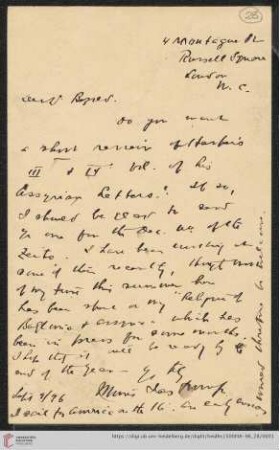 26
4 Montague Pl
Russell Square
London
W. C.
Do you want
a short review of Harper's
III & IV Vol. of his
Assyrian Letters? If so,
I should be glad to send
you one for the Dec. no. of the
I have been working at
some of them recently, though most
of my time this summer has
been spent on my "Religion of
Babylonia & Assyria" which has
been in press for some months.
I hope that it will be ready by the
end of the year
Morris Jastrow Jr
Sept 9/96
I sail for America on the 16. An early answer
would therefore be welcome.
https://digi.ub.uni-heidelberg.de/diglit/heidhs